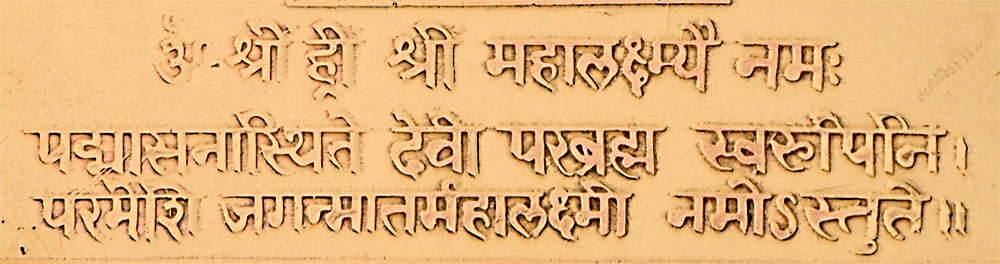 ॐ श्रीं ह्रीं श्रीं महालक्ष्म्यै नमः
पद्मासनास्थिते देवी परब्रह्म स्वरूपिणि।
परमेशि जगन्मातर्महालक्ष्मी नमोऽस्तुते॥